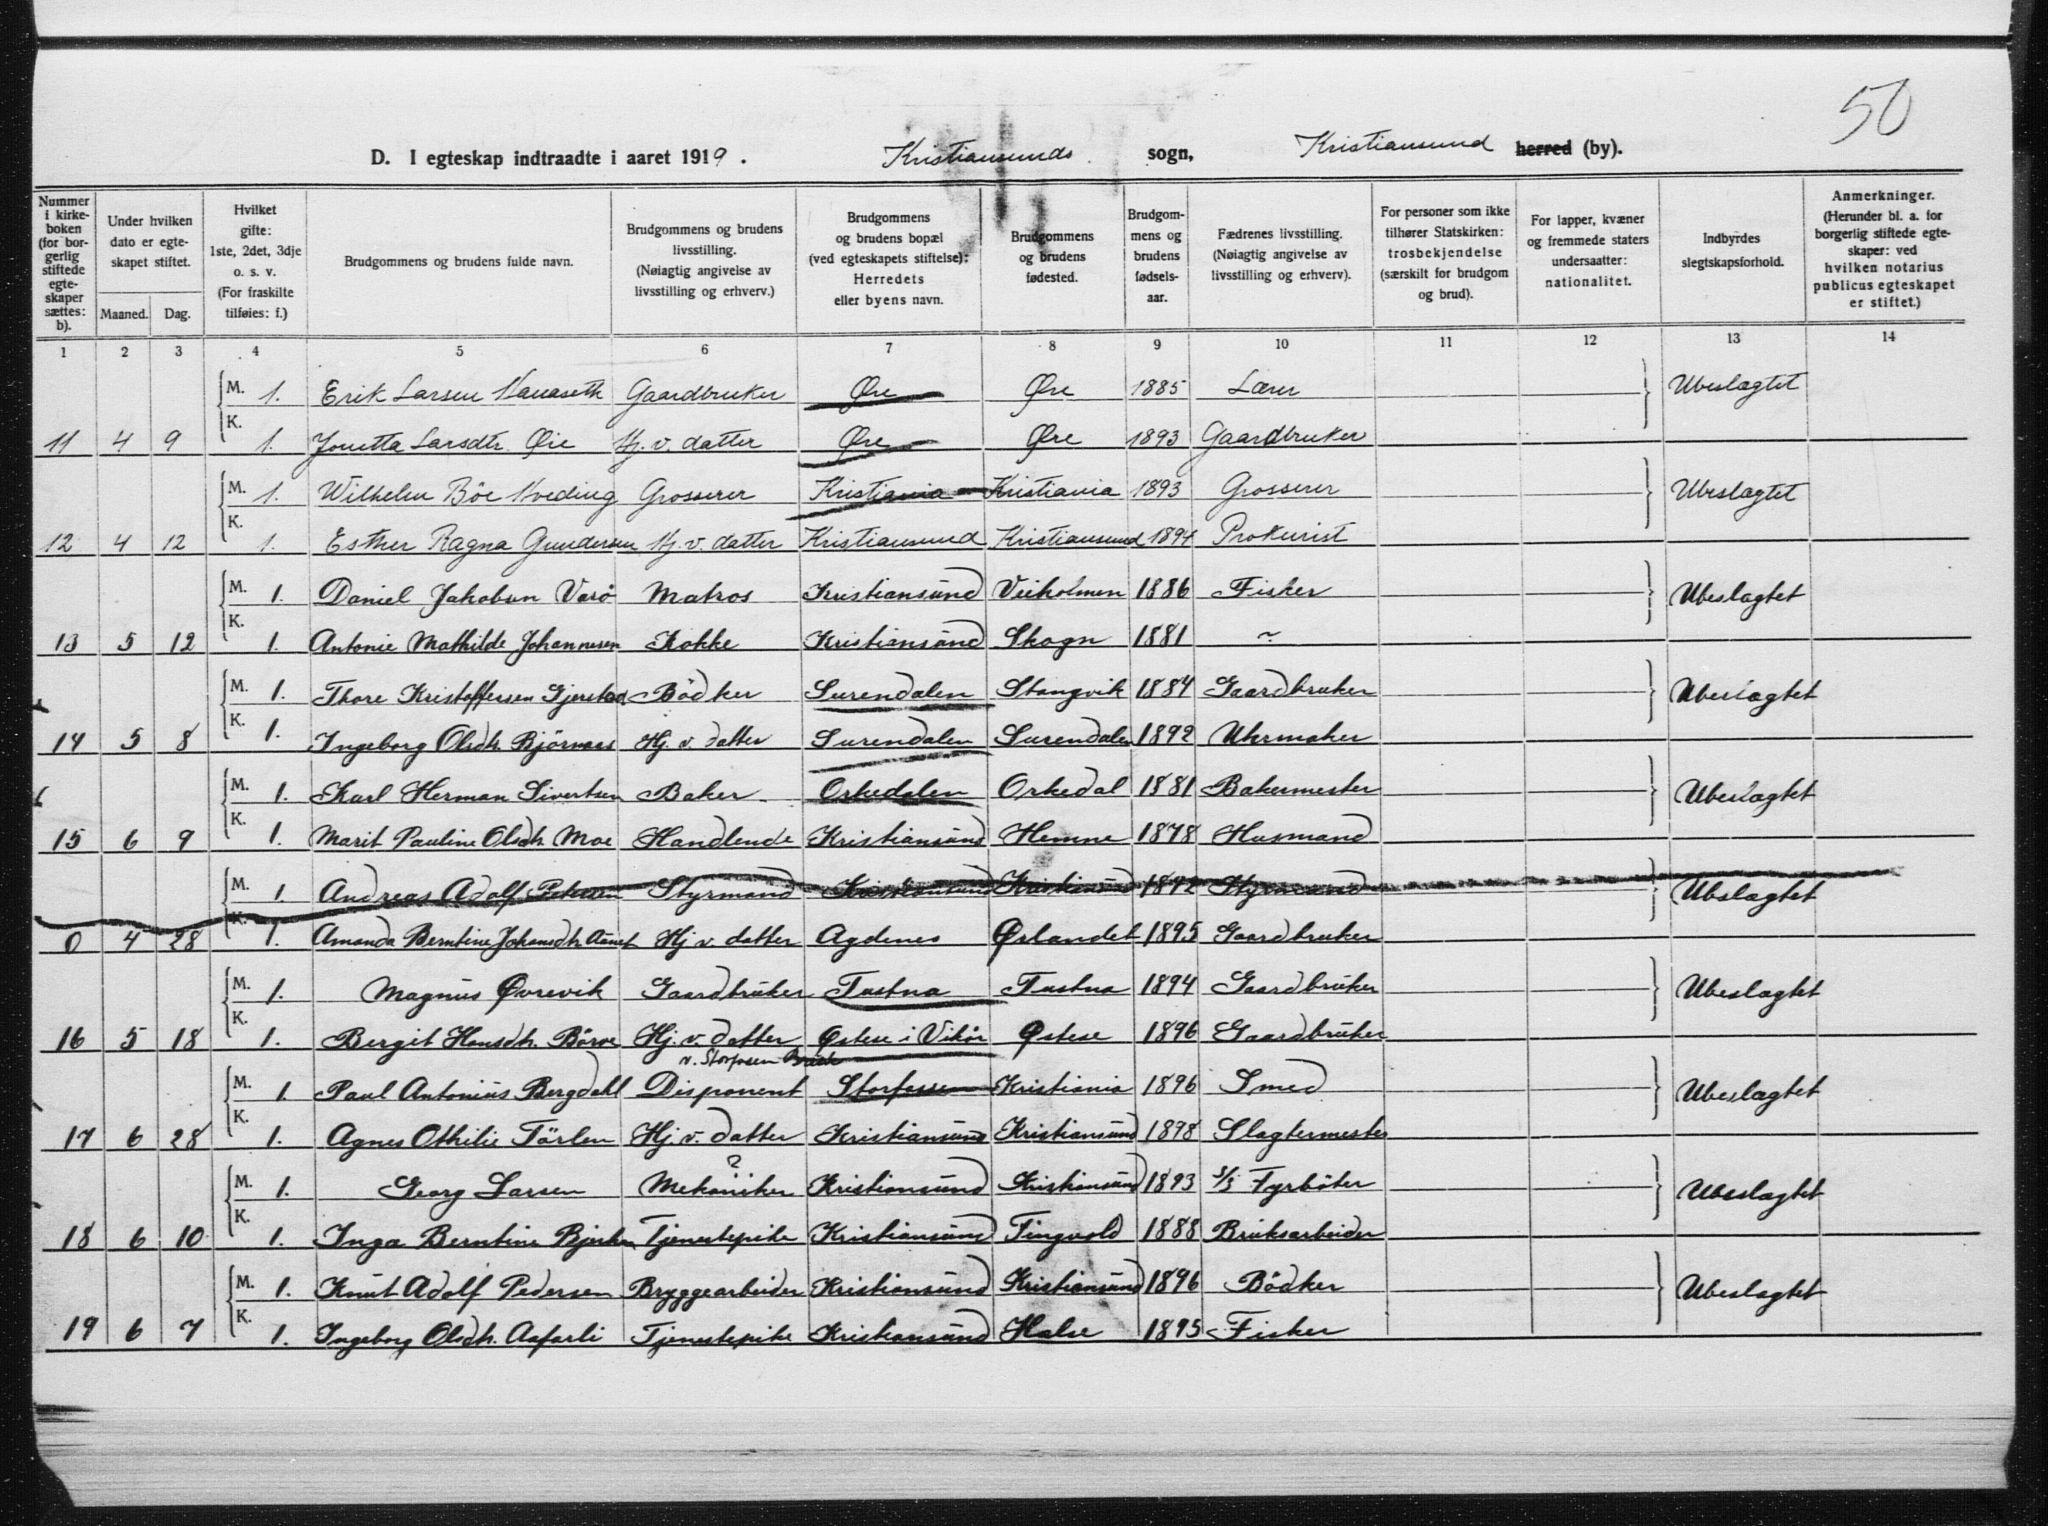 50
D. I egteskap indtraadte i aaret 1919. Kristiansunds sogn, Kristiansund herred (by).
Nummer i kirkeboken (for borgerlig stiftede egteskaper sættes: b).
Under hvilken dato er egteskapet stiftet.
Maaned. Dag.
Hvilket gifte: 1ste, 2det, 3dje o. s. v. (For fraskilte tilføies: f.)
Brudgommens og brudens fulde navn.
Brudgommens og brudens livsstilling. (Nøiagtig angivelse av livsstilling og erhverv.)
Brudgommens og brudens bopæl (ved egteskapets stiftelse): Herredets eller byens navn.
Brudgommens og brudens fødested.
Brudgommens og brudens fødselsaar.
Fædrenes livsstilling. (Nøiagtig angivelse av livsstilling og erhverv).
For personer som ikke tilhører Statskirken: trosbekjendelse (særskilt for brudgom og brud).
For lapper, kvæner og fremmede staters undersaatter: nationalitet.
Indbyrdes slegtskapsforhold.
Anmerkninger. (Herunder bl. a. for borgerlig stiftede egteskaper: ved hvilken notarius publicus egteskapet er stiftet.)
1 2 3 4 5 6 7 8 9 10 11 12 13 14
M. 1. Erik Larsen Gaardbruker Øre Øre 1885 Lærer Ubeslagtet
11 4 9 K. 1. Jonetta Larsdtr. Øie Hj. v. datter Øre Øre 1893 Gaardbruker
M. 1. Wilhelm Böe Hveding Grosserer Kristiania Kristiania 1893 Grosserer Ubeslagtet
12 4 12 K. 1. Esther Ragna Gundersen Hj. v. datter Kristiansund Kristiansund 1894 Prokurist
M. 1. Daniel Jakobsen Varö Matros Kristiansund Veiholmen 1886 Fisker Ubeslagtet
13 5 12 K. 1. Antonie Mathilde Johannesen Kokke Kristiansund Skogn 1881 ~
M. 1. Thore Kristoffersen Gjerstad Bödker Surendalen Stangvik 1884 Gaardbruker Ubeslagtet
14 5 8 K. 1. Ingeborg Olsdtr. Björnaas Hj. v. datter Surendalen Surendalen 1892 Uhrmaker
M. 1. Karl Herman Sivertsen Baker Orkedalen Orkedal 1881 Bakermester Ubeslagtet
15 6 9 K. 1. Marit Pauline Olsdtr. Moe Handlende Kristiansund Hemne 1878 Husmand
M. 1. Andreas Adolf Petersen Styrmand Kristiansund Kristiansund 1892 Styrmand Ubslagtet
0 4 28 K. 1. Amanda Berntine Johansdtr. Hj v. datter Agdenes Ørlandet 1895 Gaardbruker
M. 1. Magnus Øvrevik Gaardbruker Tustna Tustna 1894 Gaardbruker Ubeslagtet
16 5 18 K. 1. Bergit Hansdtr. Börve Hj. v. datter Østese i Vikör Østese 1896 Gaardbruker
v. Storfosen Bruk
M. 1. Paul Antonius Bergdahl Disponent Storfossen Kristiania 1896 Smed Ubeslagtet
17 6 28 K. 1. Agnes Othilie Törlen Hj. v. datter Kristiansund Kristiansund 1898 Slagtermester
?
M. 1. Georg Larsen Mekaniker Kristiansund Kristiansund 1893 s/s Fyrböter Ubeslagtet
18 6 10 K. 1. Inga Berntine Tjenestepike Kristiansund Tingvold 1888 Bruksarbeider
M. 1. Knut Adolf Pedersen Bryggearbeider Kristiansund Kristiansund 1896 Bödker Ubeslagtet
19 6 7 K. 1. Ingeborg Olsdtr. Aafarli Tjenestepike Kristiansund Halse 1895 Fisker